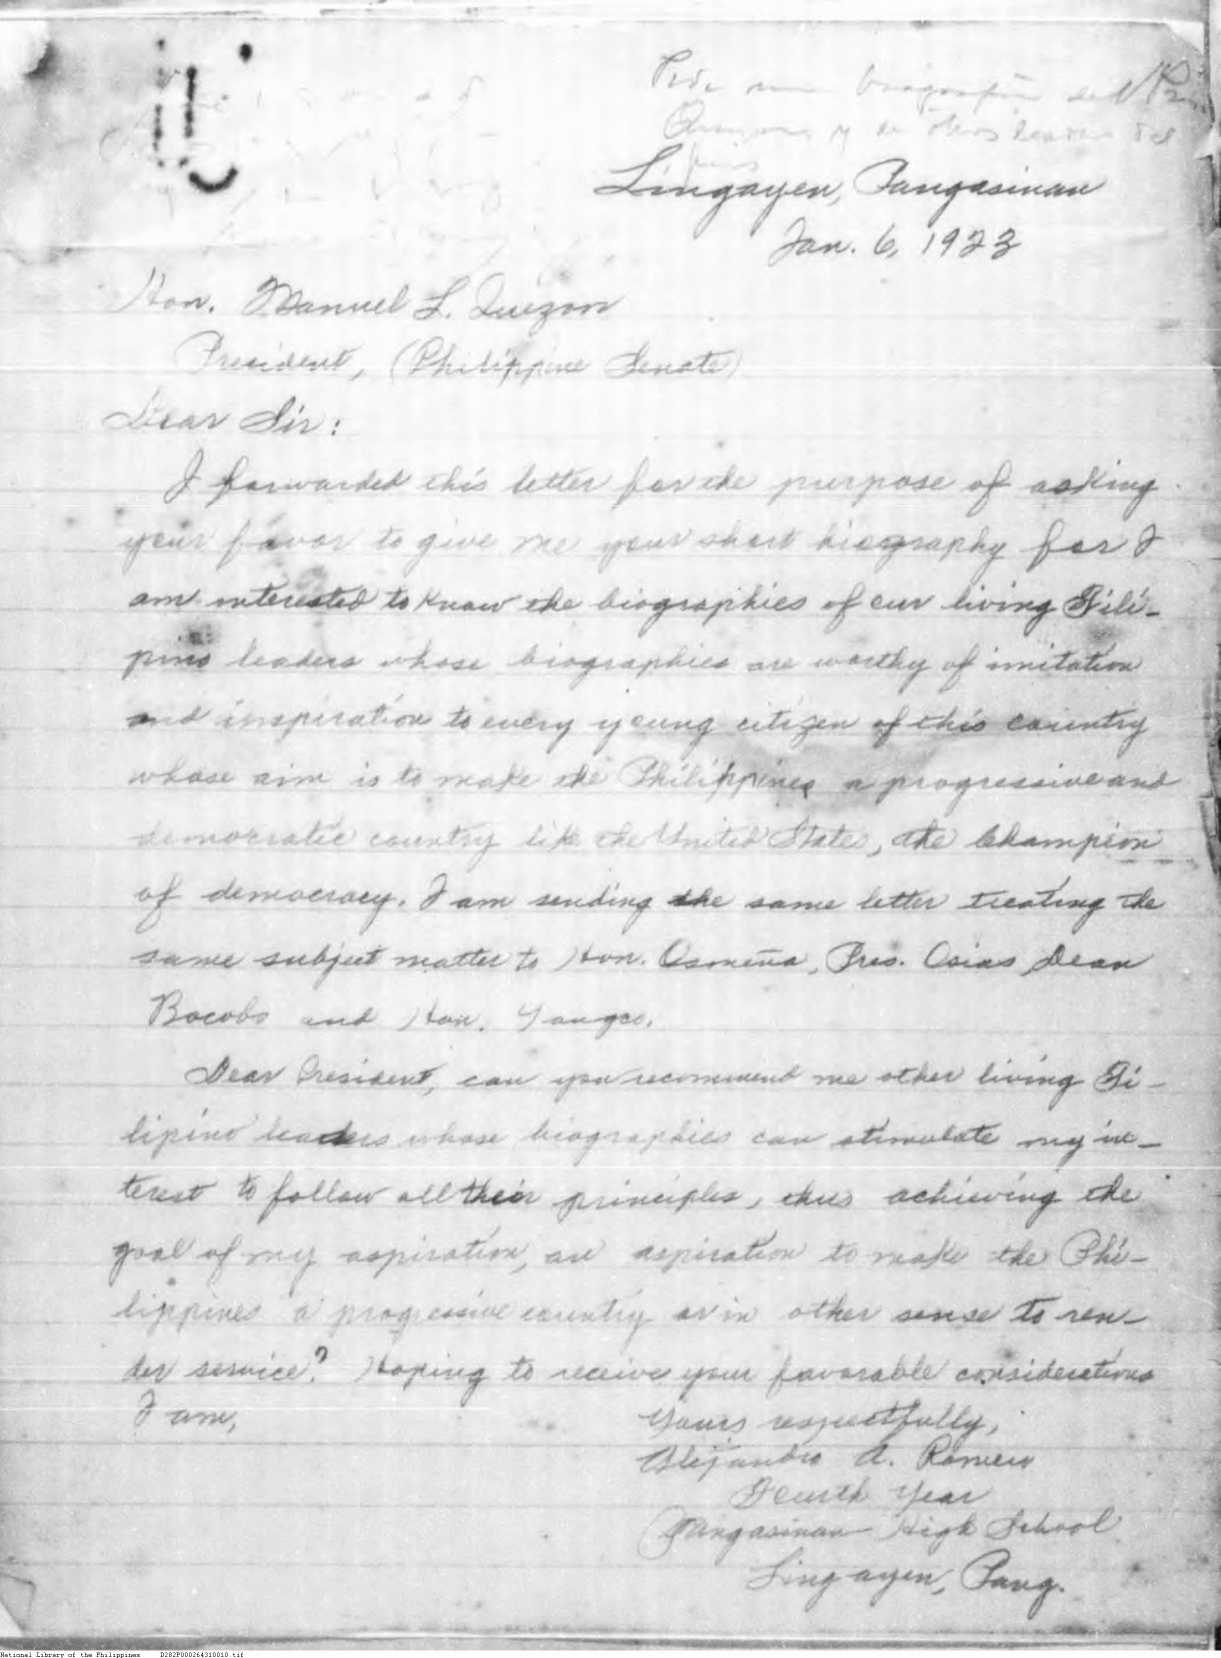 Pide una biografia del Pres.
Quezon y de otros leaders del
pais
Lingayen, Pangasinan
Jan. 6, 1923
Hon. Manuel L. Quezon
President, (Philippine Senate)
Dear Sir:
I forwarded this letter for the purpose of asking
your favor to give me your short biography for I
am interested to know the biographies of our living Fili-
pino leaders whose biographies are worthy of imitation
and inspiration to every young citizen of this country
whose aim is to make the Philippines a progressive and
democratic country like the United States, the Champion
of democracy. I am sending the same letter treating the
same subject matter to Hon. Osmeña, Pres. Osias, Dean
Bocobo and Hon. Yangco.
Dear President, can you recommend me other living Fi-
lipino leaders whose biographies can stimulate my in-
terest to follow all their principles, thus achieving the
goal of my aspiration, an aspiration to make the Phi-
lippines a progressive country or in other sense to ren-
der service? Hoping to receive your favorable considerations
I am,
Yours respectfully,
Alejandro A. Romero
Fourth Year
Pangasinan High School
Lingayen, Pang.
National Library of the Philippines D282P000264310010.tif